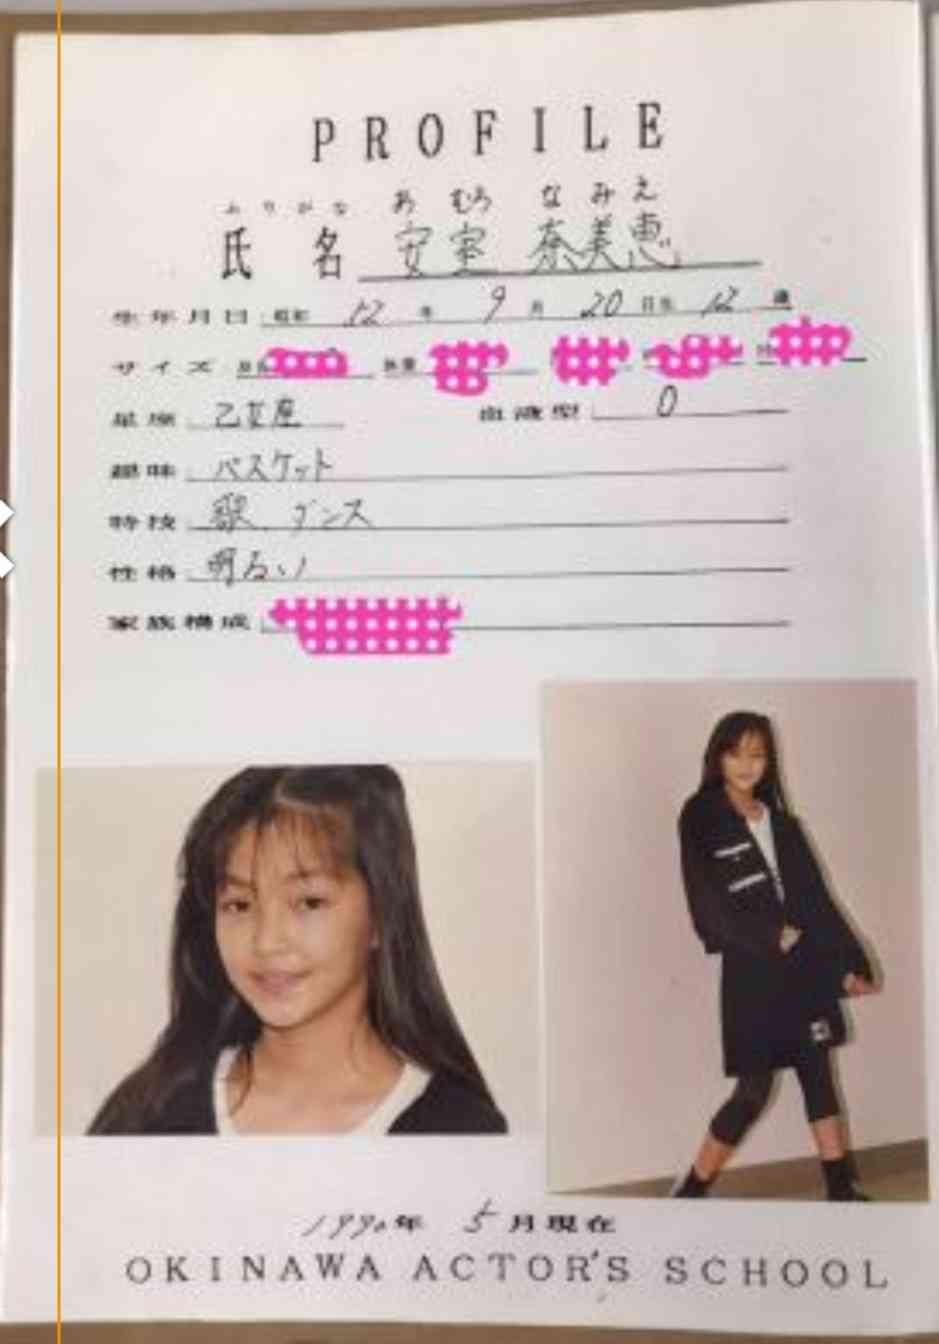 PROFILE
ふりがな あ むろ な み え
氏 名 安室 奈美恵
生年月日 昭和 52 年 9 月 20 日生 12 歳
サイズ 身長 体重
星座 乙女座 血液型 O
趣味 バスケット
特技 歌、ダンス
性格 明るい
家族構成
1990年 5月現在
OKINAWA ACTOR'S SCHOOL